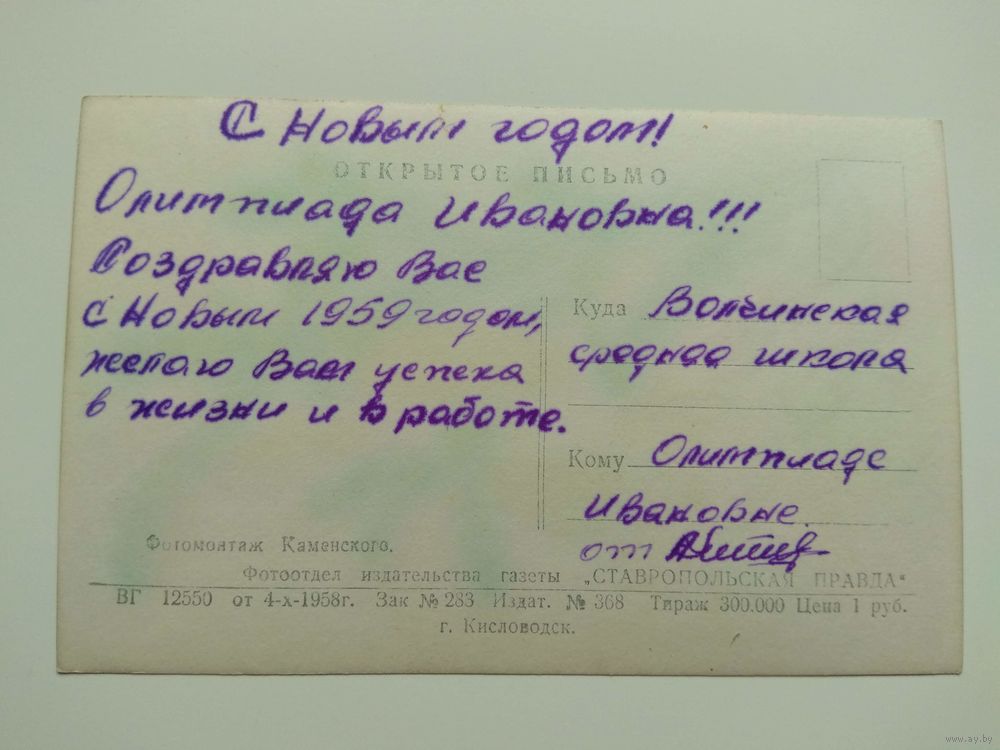 С Новым годом!
ОТКРЫТОЕ ПИСЬМО
Олимпиада Ивановна!!!
Поздравляю Вас
с Новым 1959 годом,
желаю Вам успеха
в жизни и в работе.
Куда Волчинская
средняя школа
Кому Олимпиаде
Ивановне.
от
Фотомонтаж Каменского.
Фотоотдел издательства газеты „СТАВРОПОЛЬСКАЯ ПРАВДА"
ВГ 12550 от 4-х-1958г. Зак № 283 Издат. № 368 Тираж 300.000 Цена 1 руб.
г. Кисловодск.
www.ay.by